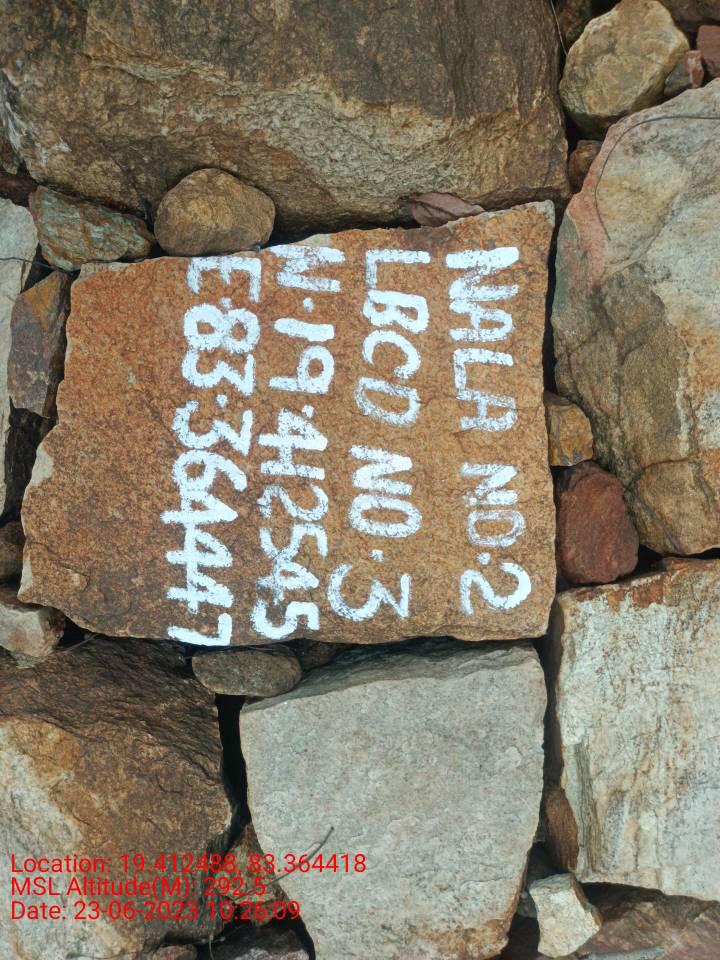 NALA NO.2
LBCD NO.3
N.19.412545
E.83.364447
Location: 19.412488, 83.364418
MSL Altitude(M): 292.5
Date: 23-06-2023 10:26:09